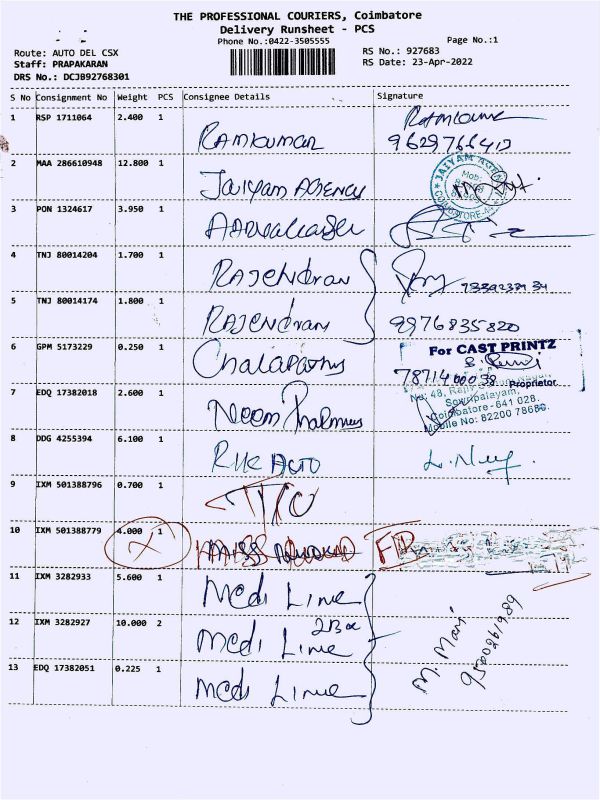 THE PROFESSIONAL COURIERS, Coimbatore
Delivery Runsheet - PCS
Phone No.:0422-3505555
Page No.:1
Route: AUTO DEL CSX
Staff: PRAPAKARAN
DRS No.: DCJ092768301
RS No.: 927683
RS Date: 23-Apr-2022
S No Consignment No Weight PCS Consignee Details Signature
1 RSP 1711064 2.400 1 RAMKUMAR
9629766412
2 MAA 286610948 12.800 1 JAIYAM AGENCY
3 PON 1324617 3.950 1
4 TNJ 80014204 1.700 1 RAJENDRAN
5 TNJ 80014174 1.800 1 RAJENDRAN 9976835820
6 GPM 5173229 0.250 1 Chalapathy
For CAST PRINTZ
Proprietor
Sowripalayam,
Coimbatore - 641 028.
Mobile No: 82200 78680.
7 EDQ 17382018 2.600 1 Neem
8 DDG 4255394 6.100 1 RUK AUTO
9 IXM 501388796 0.700 1
10 IXM 501388779 4.000 1
11 IXM 3282933 5.600 1 Medi Line
12 IXM 3282927 10.000 2 Medi Line 2Box
M. Mani
13 EDQ 17382051 0.225 1 Medi Line